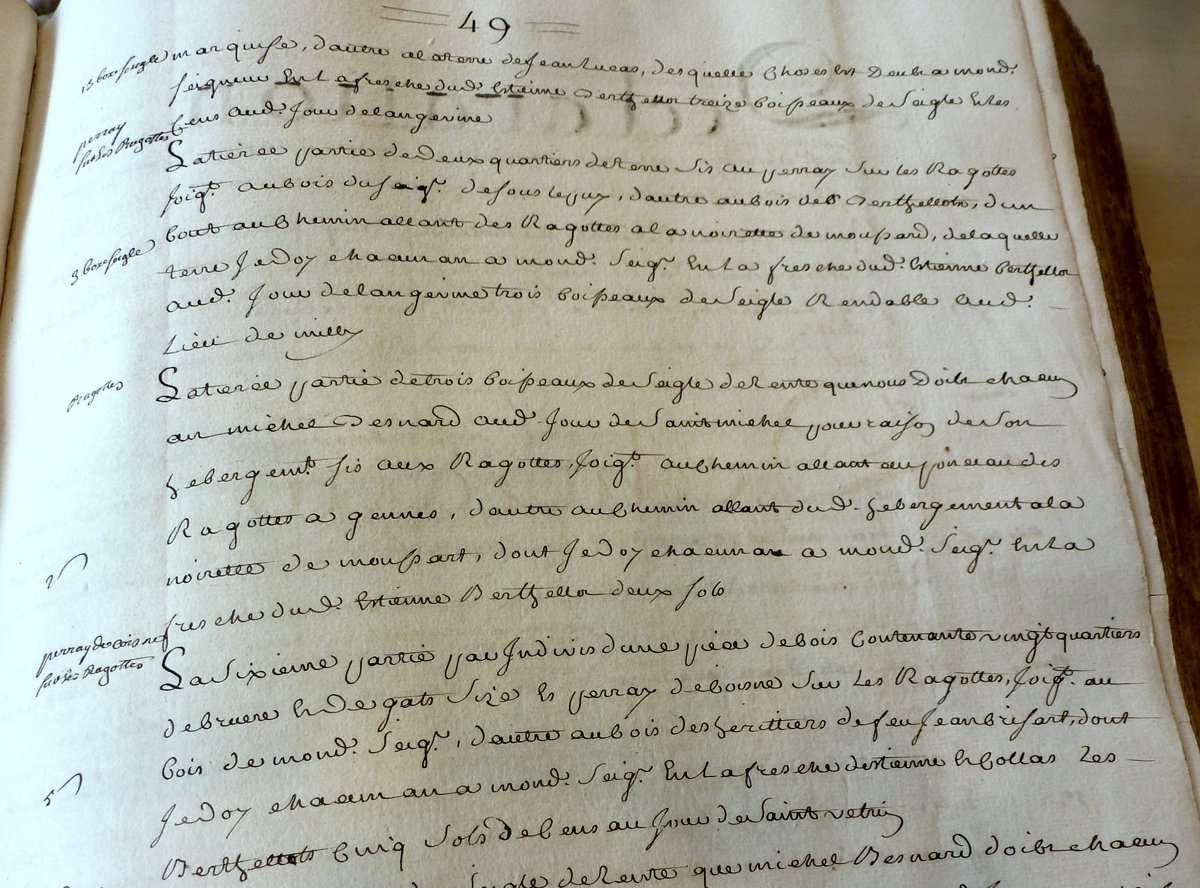 49
13 box seigle
marquise, dautre a la terre de Jean Lucas, desquelle choses est deub a mond.
seigneur en la fresche dud. Estienne Berthellot treize boisseaux de seigle et les
cens aud. Jour de langevine
perray sur les Ragottes
La tierce partie de deux quartiers de terre sis au perray sur les Ragottes
Joigt. au bois du seigr. de sous le puy, dautre au bois des Berthellots, dun
bout au chemin allant des Ragottes a la noirette de moussard, de laquelle
3 box seigle
terre Je doy chacun an a mond. Seigr. en la fresche dud. Estienne Berthellot
aud. Jour de langevine trois boisseaux de seigle Rendable aud.
Lieu de milly
Ragottes
La tierce partie de trois boisseaux de seigle de Rente que nous doibt chacun
an michel Besnard aud. Jour de Saint michel pour raison de son
hebergemt. sis aux Ragottes, Joigt. au chemin allant au des
Ragottes a gennes, dautre au chemin allant dud. hebergement a la
noirette de moussart, dont Je doy chacun an a mond. Seigr. en la
2 s
fresche dud. Estienne Berthellot deux sols
perray de boisne sur les Ragottes
La sixieme partie par Indivis dune piece de bois contenante vingt quartiers
de bruere et de gats size es perray de boisne sur les Ragottes, Joigt. au
bois de mond. Seigr., dautre au bois des herittiers de feu Jean brisart, dont
5 s
Je doy chacun an a mond. Seigr. en la fresche destienne et Collas les
Berthellots cinq sols de cens au Jour de Saint
seigle de Rente que michel Besnard doibt chacun